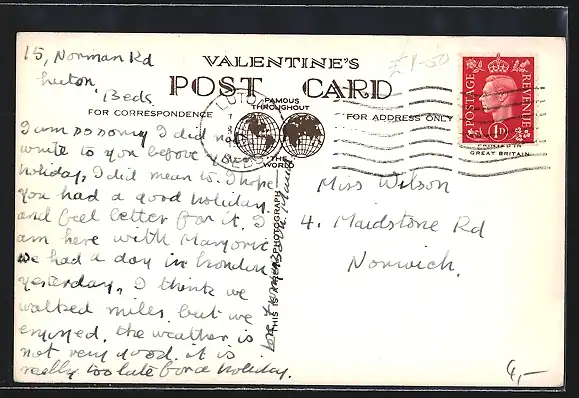 15, Norman Rd
Luton
Beds
VALENTINE'S
POST CARD
£1-50
FOR CORRESPONDENCE
FAMOUS
THROUGHOUT
THE
WORLD
FOR ADDRESS ONLY
LUTON
BEDS
POSTAGE
REVENUE
1D
PRINTED IN
GREAT BRITAIN
I am so sorry I did not
write to you before your
holiday, I did mean to. I hope
you had a good holiday.
and feel better for it. I
am here with Marjorie
we had a day in London
yesterday, I think we
walked miles. but we
enjoyed. the weather is
not very good. it is
really too late for a holiday.
Love from
THIS IS A REAL PHOTOGRAPH
Miss Wilson
4. Maidstone Rd
Norwich.
4,-